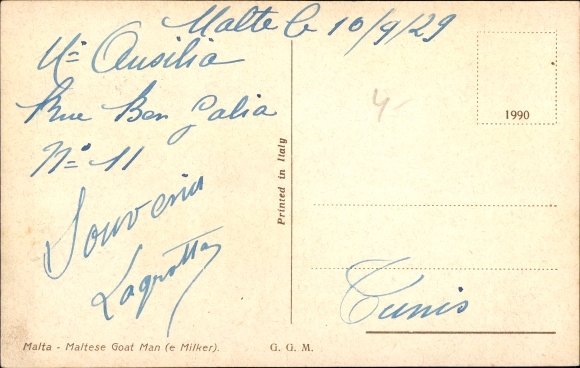 Malte le 10/9/29
Mse Ausilia
Rue Ben Galia
No 11
Souvenir
Lagrotta
Tunis
4-
1990
Printed in Italy
Malta - Maltese Goat Man (e Milker).
G. G. M.